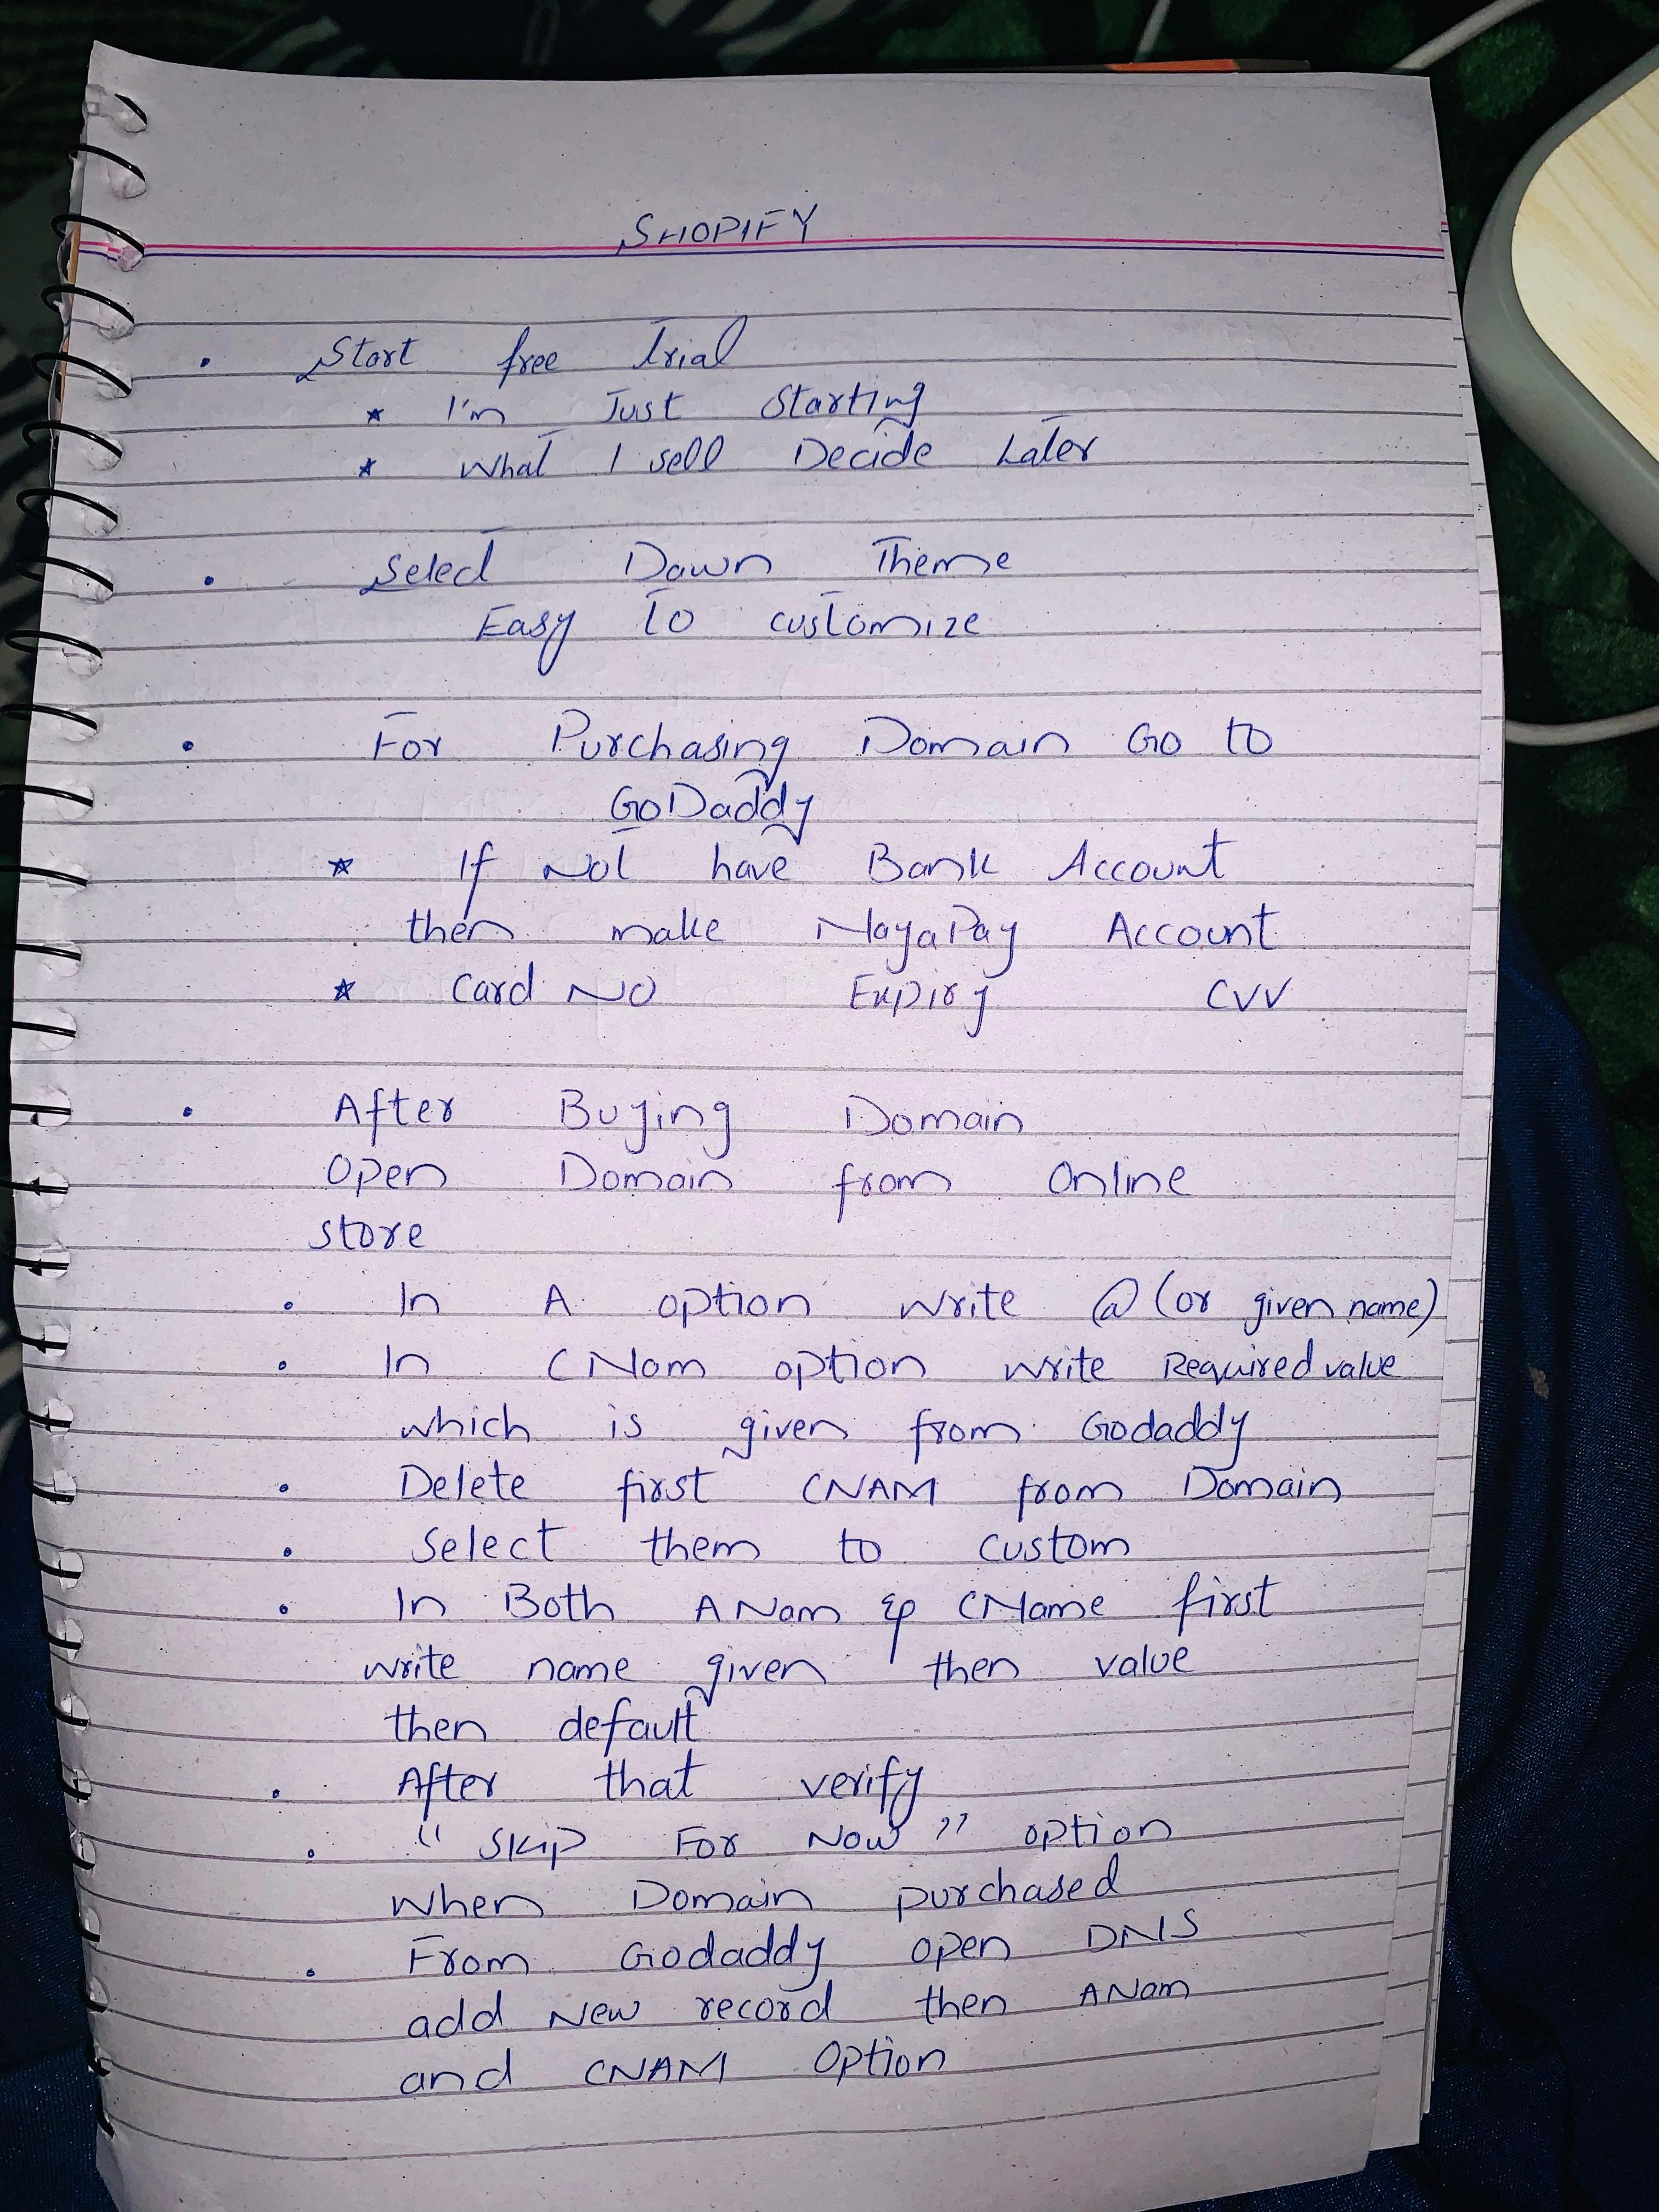 SHOPIFY
• Start free trial
* I'm Just Starting
* What I sell Decide Later
• Select Dawn Theme
Easy To customize
• For Purchasing Domain Go to
GoDaddy
* If Not have Bank Account
then make NayaPay Account
* Card NO Expiry CVV
• After Buying Domain
Open Domain from Online
store
• In A option write @ (or given name)
• In CNam option write Required value
which is given from Godaddy
• Delete first CNAM from Domain
• Select them to custom
• In Both ANam & CName first
write name given then value
then default
• After that verify
• "Skip For Now" option
when Domain purchased
• From Godaddy open DNS
add New record then ANam
and CNAM Option